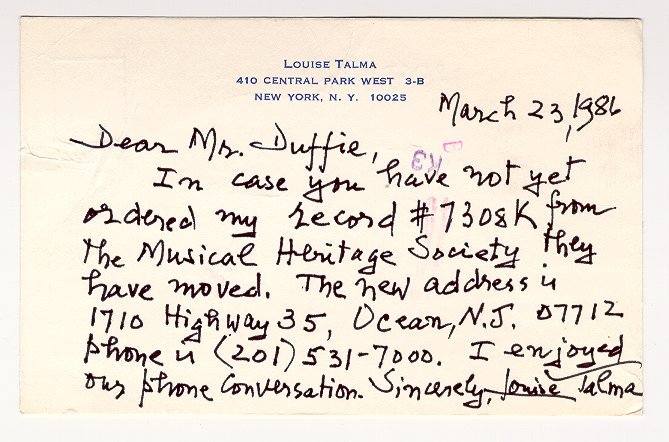 LOUISE TALMA
410 CENTRAL PARK WEST 3-B
NEW YORK, N. Y. 10025
March 23, 1986
Dear Mr. Duffie,
In case you have not yet
ordered my record #7308K from
the Musical Heritage Society they
have moved. The new address is
1710 Highway 35, Ocean, N.J. 07712
phone is (201) 531-7000. I enjoyed
our phone conversation. Sincerely, Louise Talma